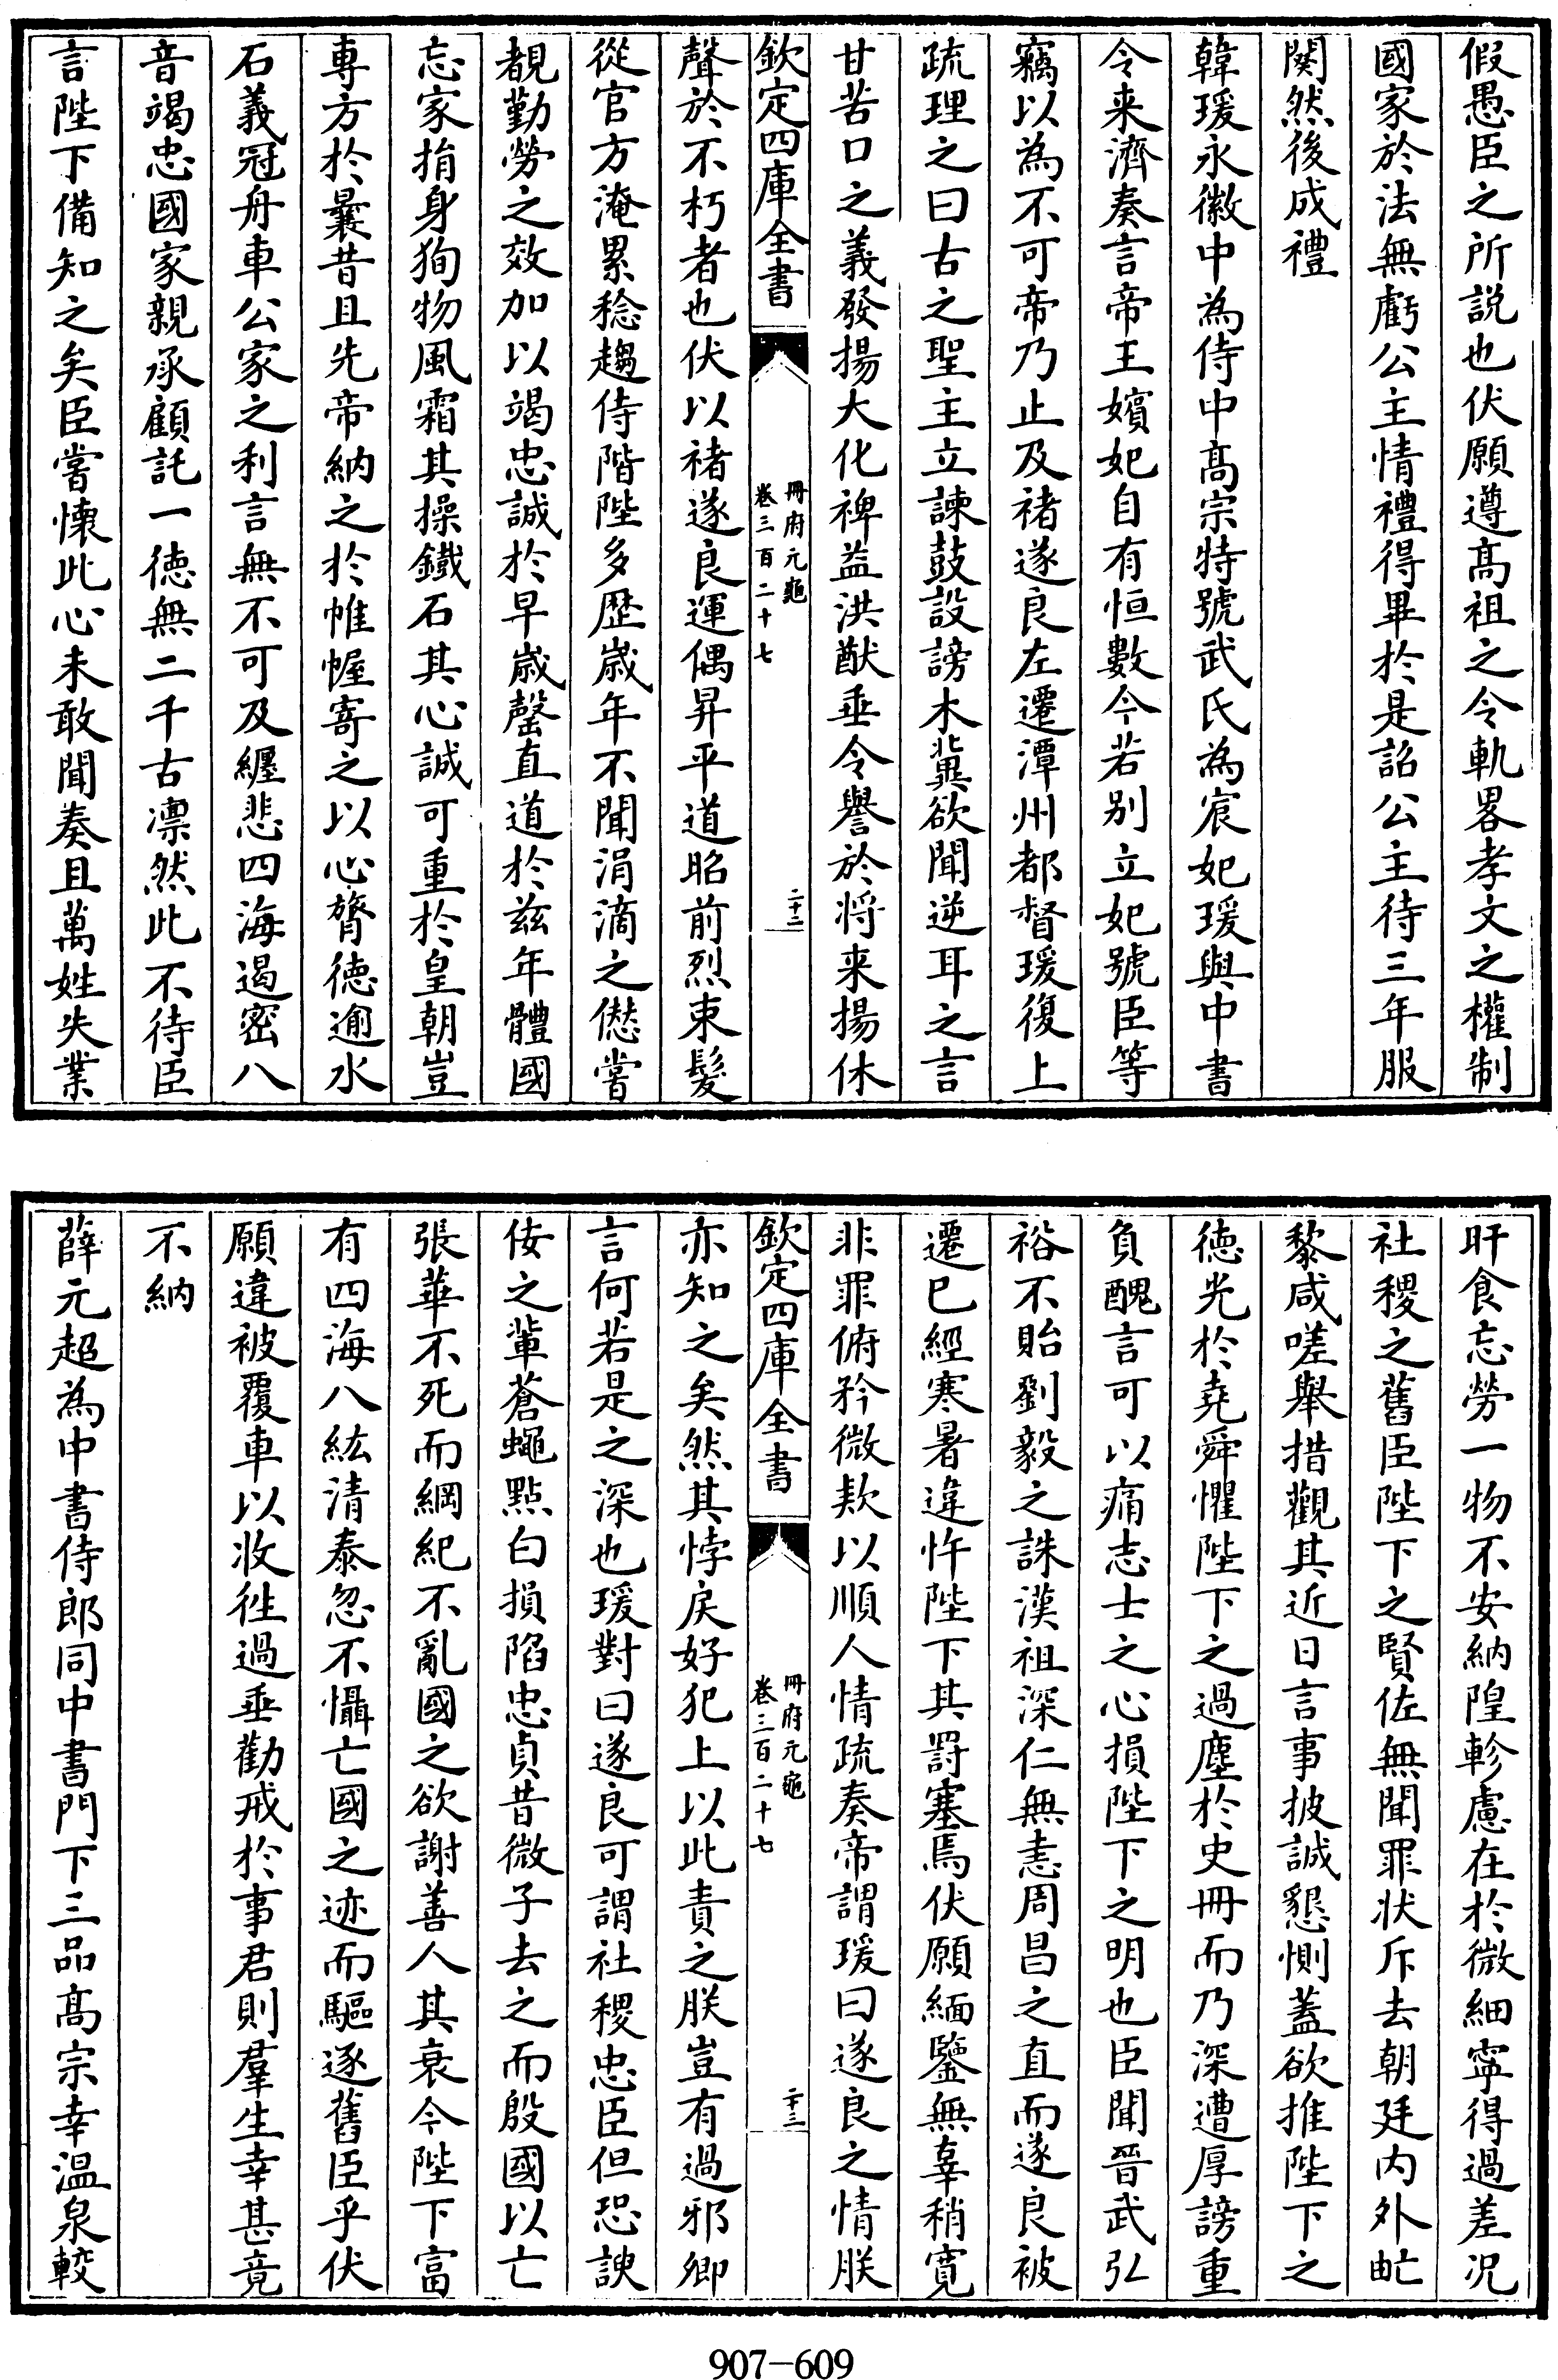 假愚臣之所説也伏願遵髙祖之令軌畧孝文之權制
國家於法無虧公主情禮得畢於是詔公主待三年服
闋然後成禮
韓瑗永徽中為侍中髙宗特號武氏為宸妃瑗與中書
令来濟奏言帝王嬪妃自有恒數今若别立妃號臣等
竊以為不可帝乃止及禇遂良左遷潭州都督瑗復上
疏理之曰古之聖主立諫鼓設謗木冀欲聞逆耳之言
甘苦口之義發揚大化裨益洪猷垂令譽於将来揚休
欽定四庫全書
冊府元龜
卷三百二十七
二十二
聲於不朽者也伏以禇遂良運偶昇平道昭前烈束髮
從官方淹累稔趨侍階陛多歴歳年不聞涓滴之愆嘗
覩勤勞之效加以竭忠誠於早歳罄直道於兹年體國
忘家捐身狥物風霜其操鐵石其心誠可重於皇朝豈
専方於曩昔且先帝納之於帷幄寄之以心膂徳逾水
石義冠舟車公家之利言無不可及纒悲四海遏密八
音竭忠國家親承顧託一徳無二千古凛然此不待臣
言陛下備知之矣臣嘗懐此心未敢聞奏且萬姓失業
旰食忘勞一物不安納隍軫慮在於微細寜得過差况
社稷之舊臣陛下之賢佐無聞罪状斥去朝廷内外甿
黎咸嗟舉措觀其近日言事披誠懇惻蓋欲推陛下之
徳光於堯舜懼陛下之過塵於史冊而乃深遭厚謗重
負醜言可以痛志士之心損陛下之明也臣聞晉武弘
裕不貽劉毅之誅漢祖深仁無恚周昌之直而遂良被
遷已經寒暑違忤陛下其罸塞焉伏願緬鑒無辜稍寛
非罪俯矜微欵以順人情疏奏帝謂瑗曰遂良之情朕
欽定四庫全書
冊府元龜
卷三百二十七
二十三
亦知之矣然其悖戾好犯上以此責之朕豈有過邪卿
言何若是之深也瑗對曰遂良可謂社稷忠臣但恐諛
佞之軰蒼蠅點白損陷忠貞昔微子去之而殷國以亡
張華不死而綱紀不亂國之欲謝善人其衰今陛下富
有四海八紘清泰忽不懾亡國之迹而驅逐舊臣乎伏
願違被覆車以收徃過垂勸戒於事君則羣生幸甚竟
不納
薛元超為中書侍郎同中書門下三品髙宗幸温泉較
907-609